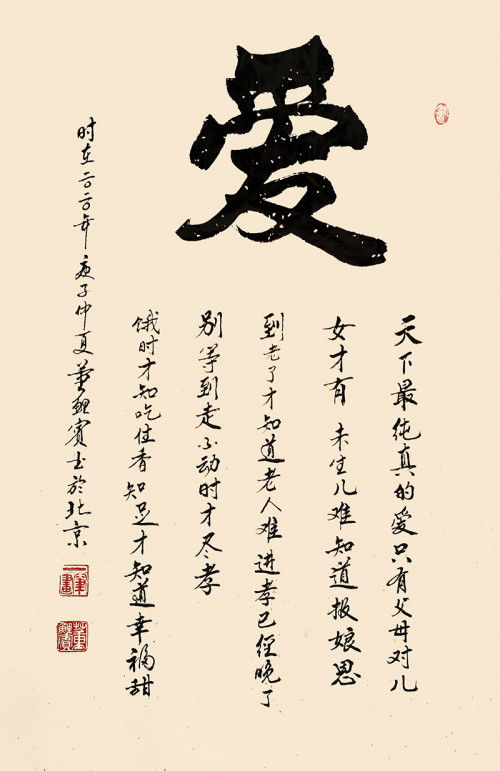 爱
天下最纯真的爱只有父母对儿
女才有 未生儿难知道报娘恩
到老了才知道老人难进孝已经晚了
别等到走不动时才尽孝
饿时才知吃住香知足才知道幸福甜
时在二〇二〇年庚子仲夏董鲲宾书於北京